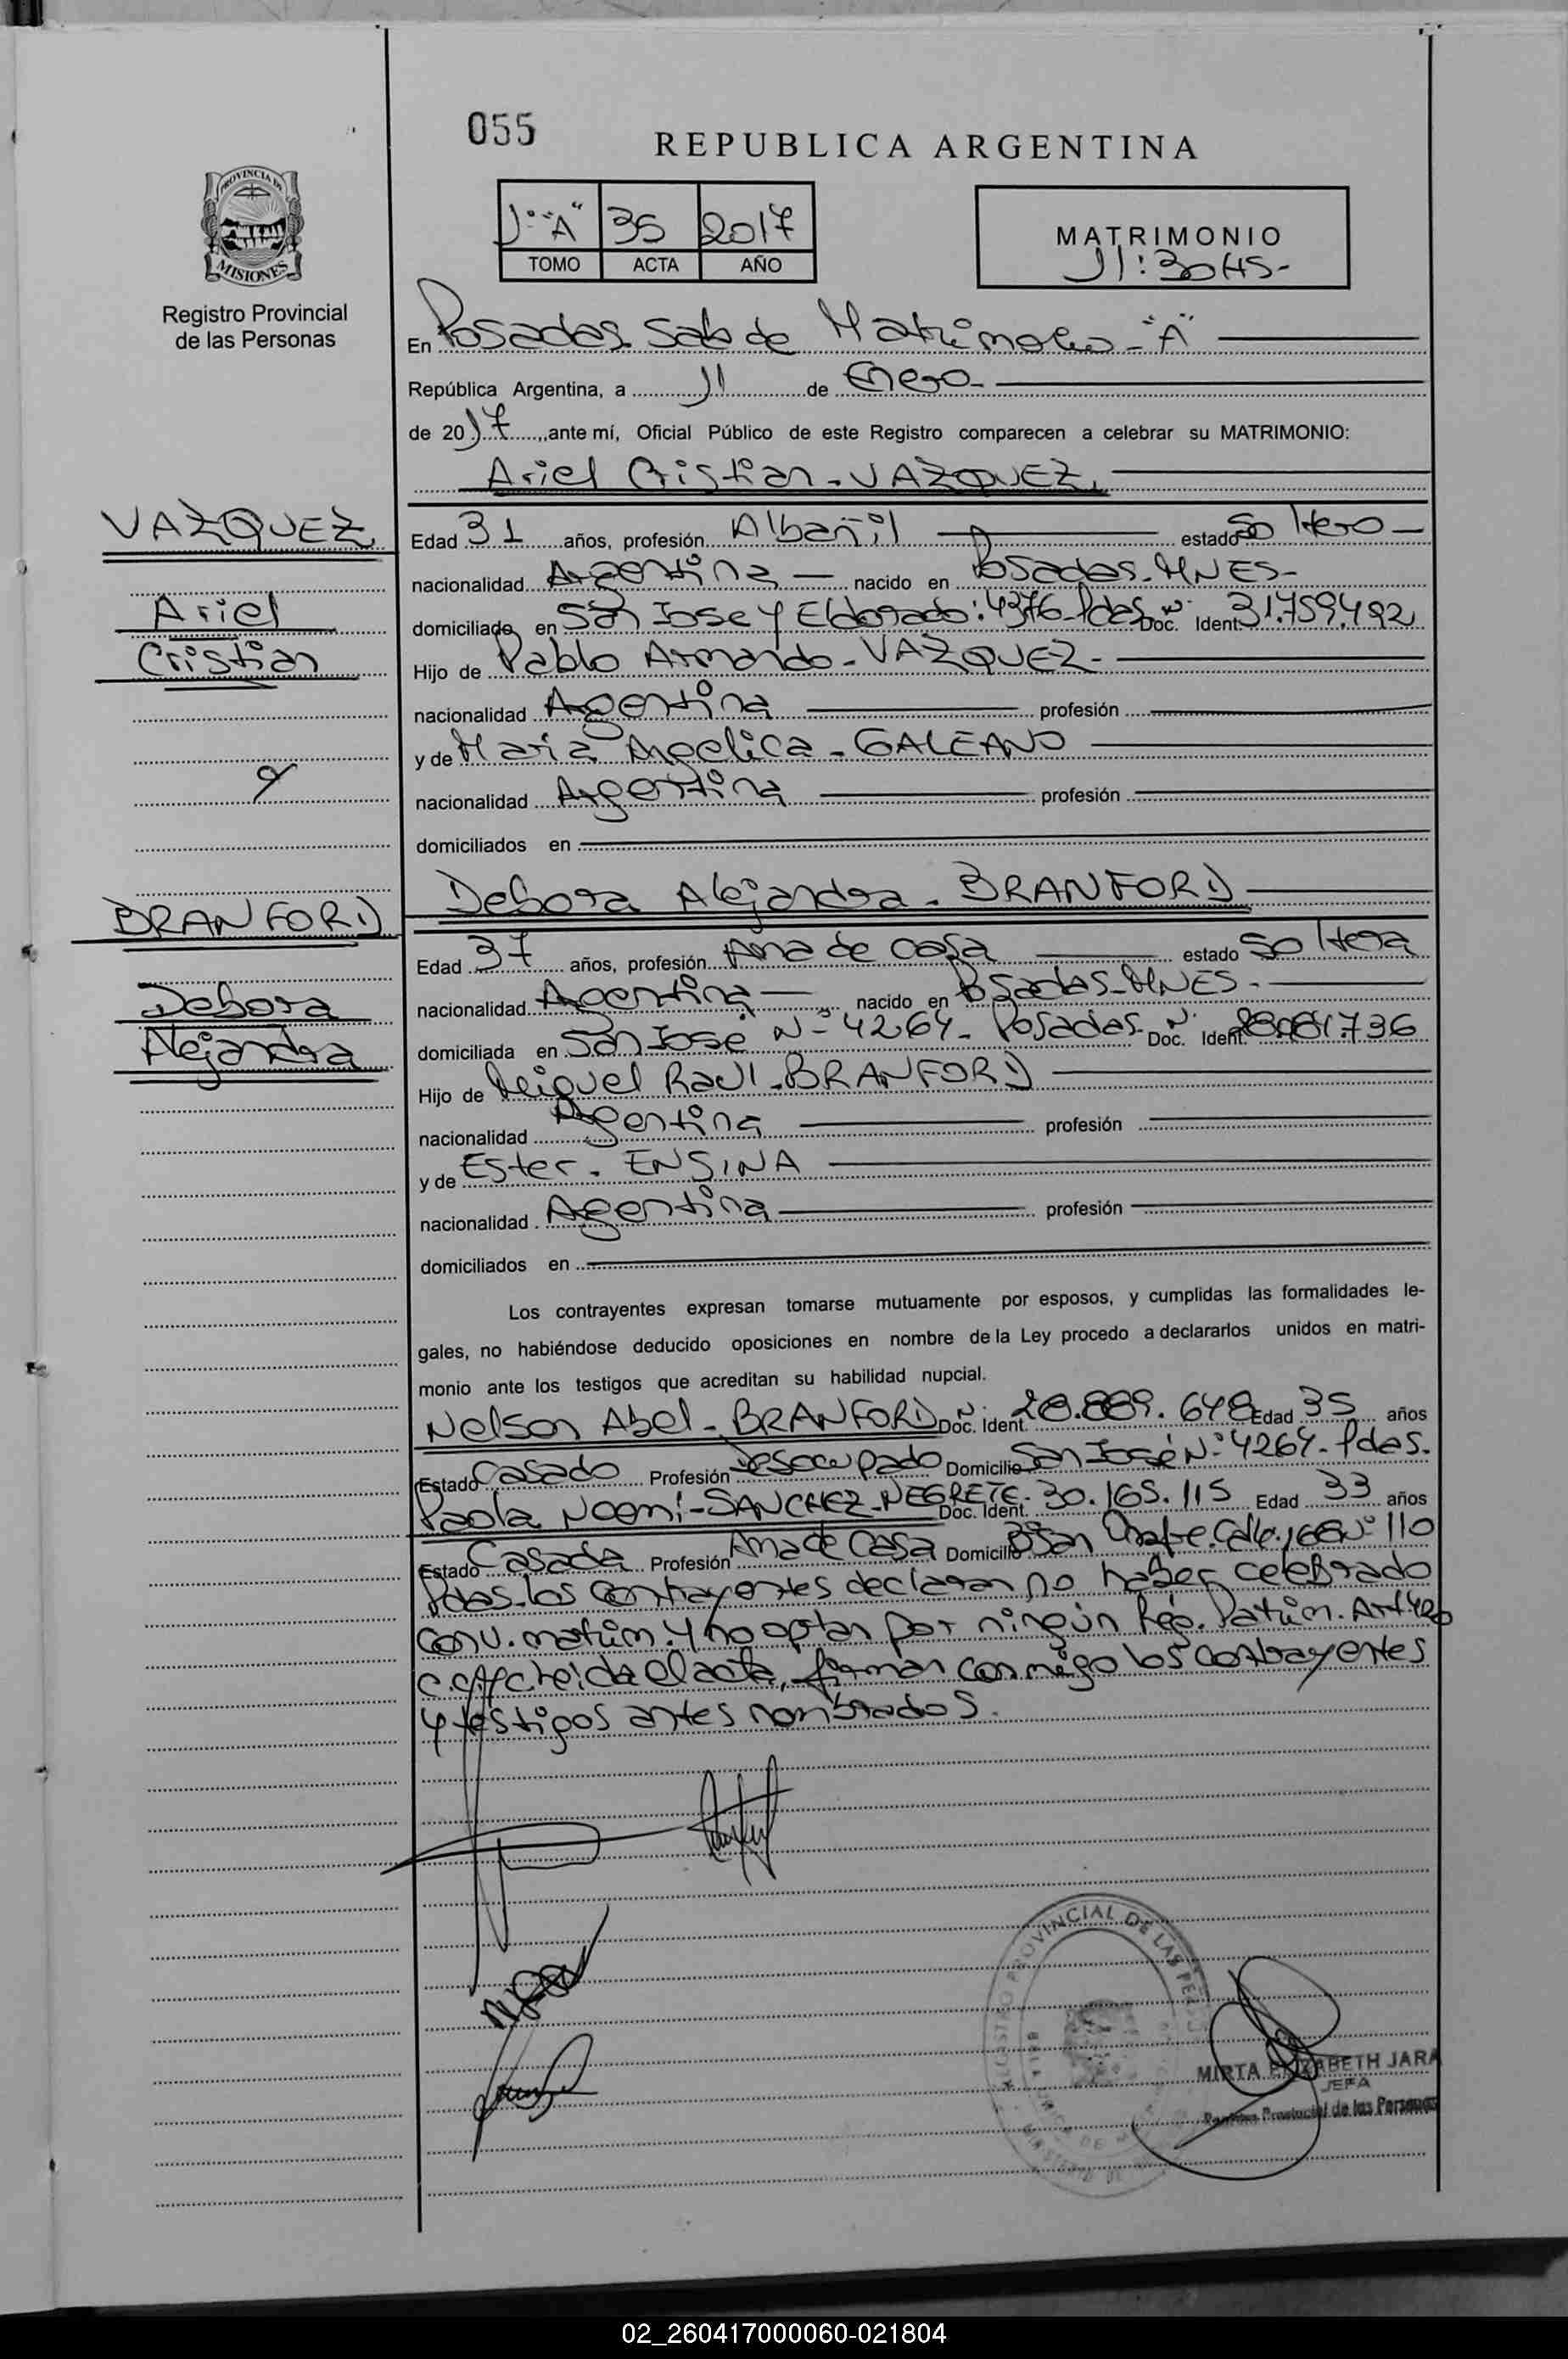 055
REPUBLICA ARGENTINA
PROVINCIA DE
MISIONES
Registro Provincial
de las Personas
1º "A" 35 2017
TOMO ACTA AÑO
MATRIMONIO
11:30HS-
En Posadas. Sala de Matrimonio - "A"
República Argentina, a 11 de Enero-
de 2017,,ante mí, Oficial Público de este Registro comparecen a celebrar su MATRIMONIO:
Ariel Cristian - VAZQUEZ
VAZQUEZ
Ariel
Cristian
Y
BRANFORD
Debora
Alejandra
Edad 31 años, profesión Albañil estado Soltero -
nacionalidad Argentina - nacido en Posadas-MNES-
domiciliado en San Jose y Eldorado: 4376-Pdas Doc. Nº Ident. 31.759.492
Hijo de Pablo Armando - VAZQUEZ -
nacionalidad Argentina profesión
y de Maria Angelica - GALEANO
nacionalidad Argentina profesión
domiciliados en
Debora Alejandra - BRANFORD
Edad 37 años, profesión Ama de casa estado Soltera
nacionalidad Argentina - nacido en Posadas-MNES-
domiciliada en San José Nº 4264- Posadas Doc. Nº Ident.
Hijo de Miguel Raul - BRANFORD
nacionalidad Argentina profesión
y de Ester - ENSINA
nacionalidad Argentina profesión
domiciliados en
Los contrayentes expresan tomarse mutuamente por esposos, y cumplidas las formalidades le-
gales, no habiéndose deducido oposiciones en nombre de la Ley procedo a declararlos unidos en matri-
monio ante los testigos que acreditan su habilidad nupcial.
Nelson Abel - BRANFORD Doc. Nº Ident. 28.889.648 Edad 35 años
Estado Casado Profesión Desocupado Domicilio San José Nº 4264- Pdas.
Paola Noemi - SANCHEZ - NEGRETE - Doc. Ident. 30.165.115 Edad 33 años
Estado Casada Profesión Ama de Casa Domicilio Nº 110
Pdas. los contrayentes declaran no haber celebrado
conv. matrim. y no optan por ningún Rég. Patrim. Art 420
leida el acta, firman conmigo los contrayentes
y testigos antes nombrados.
PROVINCIAL DE LAS
MIRTA ELIZABETH JARA
JEFA
Registro Provincial de las Personas
02_260417000060-021804